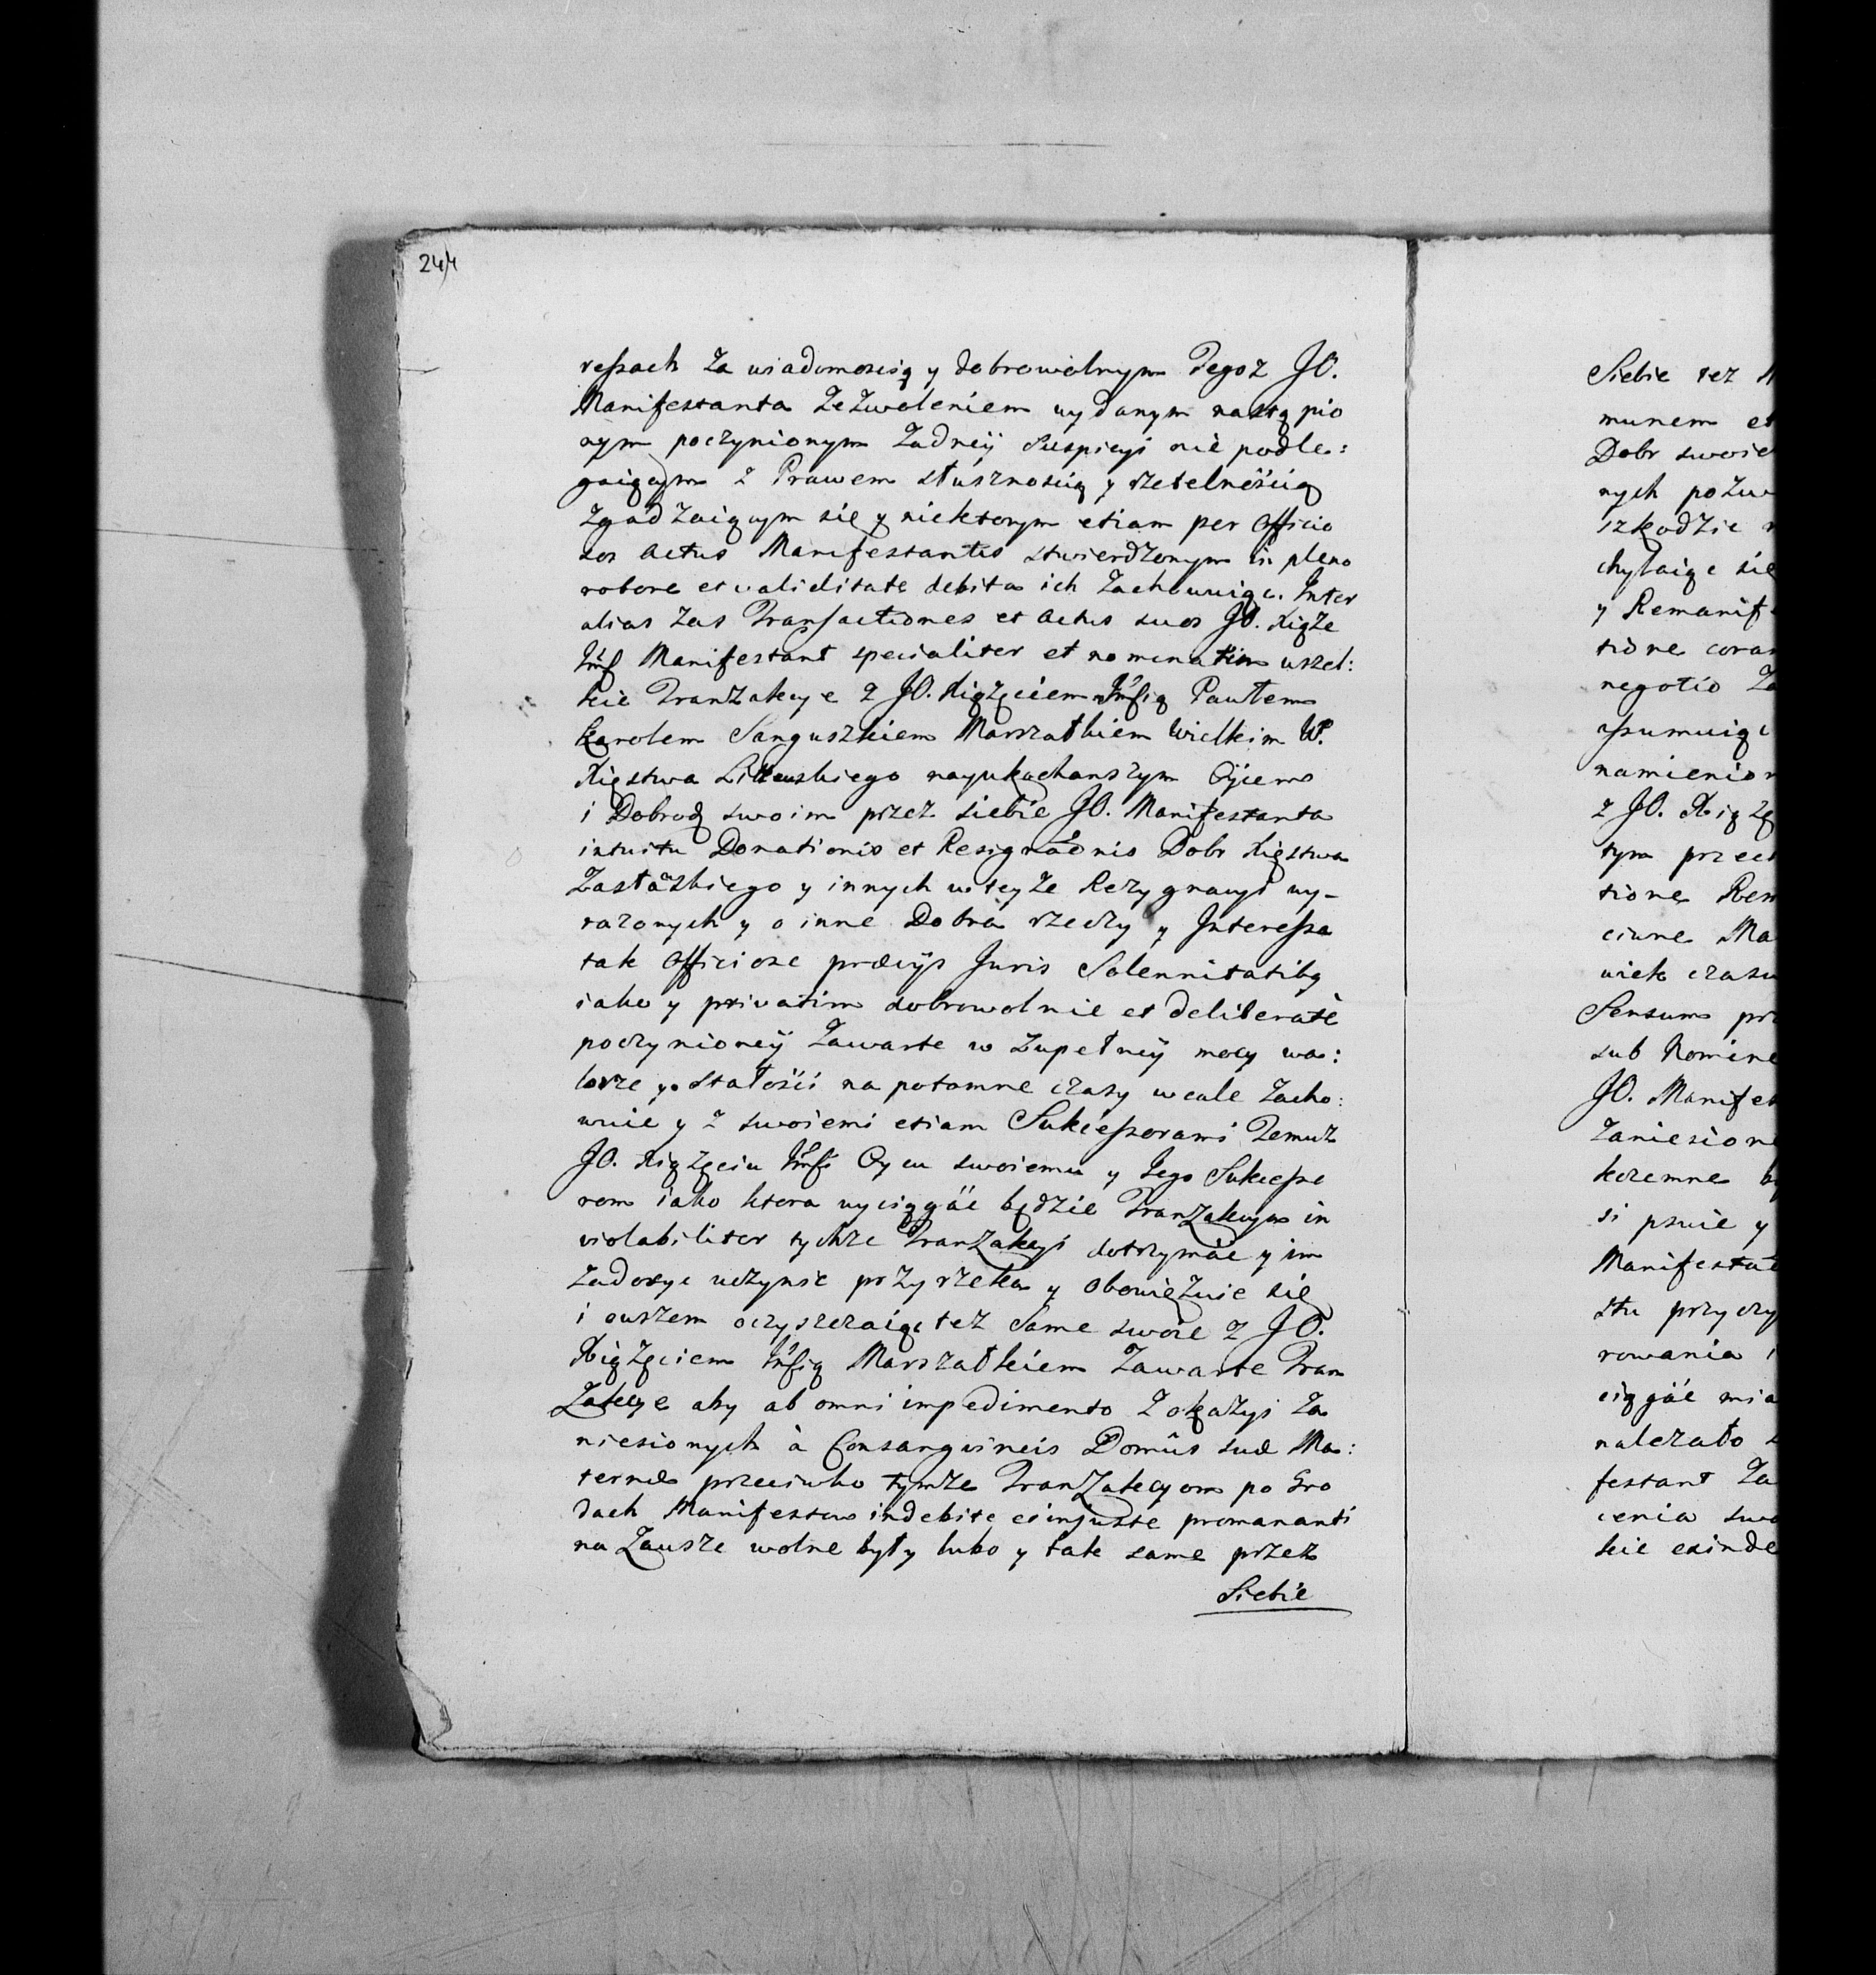 244
reſsach Za wiadomoscią y dobrowolnym Tegoż JO.
Manifestanta Zezwoleniem wydanym nastąpio
nym poczynionym Zadneÿ Suspicyi nie podle:
gaiącym z Prawem słusznością y rzetelnością
Zgadzaiącym się y niektorym etiam per Officio
sos Actus Manifestantis stwierdzonym in pleno
robore et validitate debita ich Zachowuiąc. Inter
alias Zas Transactiones et Actus suos JO. Xiąże
Jmſ Manifestant specialiter et nominatim wszel:
kie Tranzakcye z JO. Xiążęciem Jmſią Pawłem
Karolem Sanguszkiem Marszałkiem Wielkim W.
Xięstwa Littewskiego nayukochanszym Oÿcem
i Dobrodz swoim przez siebie JO. Manifestanta
intuitu Donationis et Resignãonis Dobr Xięstwa
Zasławskiego y innych w teyże Rezygnacyi wy-
razonych y o inne Dobra rzeczy y Intereſsa
tak Officiose præviis Juris Solennitatibq
iako y privatim dobrowolnie et deliberatè
poczynioneÿ Zawarte w Zupełneÿ mocy wa:
lorze y stałości na potomne czasy wcale Zacho:
wuie y z swoiemi etiam Sukceſsorami Temuż
JO. Xiążęciu Jmſi Oycu swoiemu y Jego Sukceſso
rom iako ktora wyciągáć będzie Tranzakcya in
violabiliter tychże Tranzakcyi dotrzymáć y im
Zadosyc uczynic przyrzeka y obowięzuie się
i owszem oczyszczaiąc też same swoie z JO.
Xiążęciem Jmſią Marszałkiem Zawarte Tran
Zakcye aby ab omni impedimento Z okazyi Za
niesionych à Consangvineis Domûs suæ Ma:
ternæ przeciwko tymże Tranzakcyom po Gro
dach Manifestow indebite et injuste promananti
na Zawsze wolne były lubo y tak same przez
Siebie
Siebie też
munem et
Dobr swoie
nych pożw
szkodzie
chylaiąc się
y Remanif
tione coram
negotio Za
ſsumuiąc
namienion
z JO. Xiążę
tym przec
tione Rem
ciwne Ma
wiek czasu
Sensum prz
sub Nomine
JO. Manifes
Zaniesione
kczemne b
si psuie y
Manifestat
stu przyczy
rowania
ciągáć mia
należało
festant Za
cenia swo
kie exinde